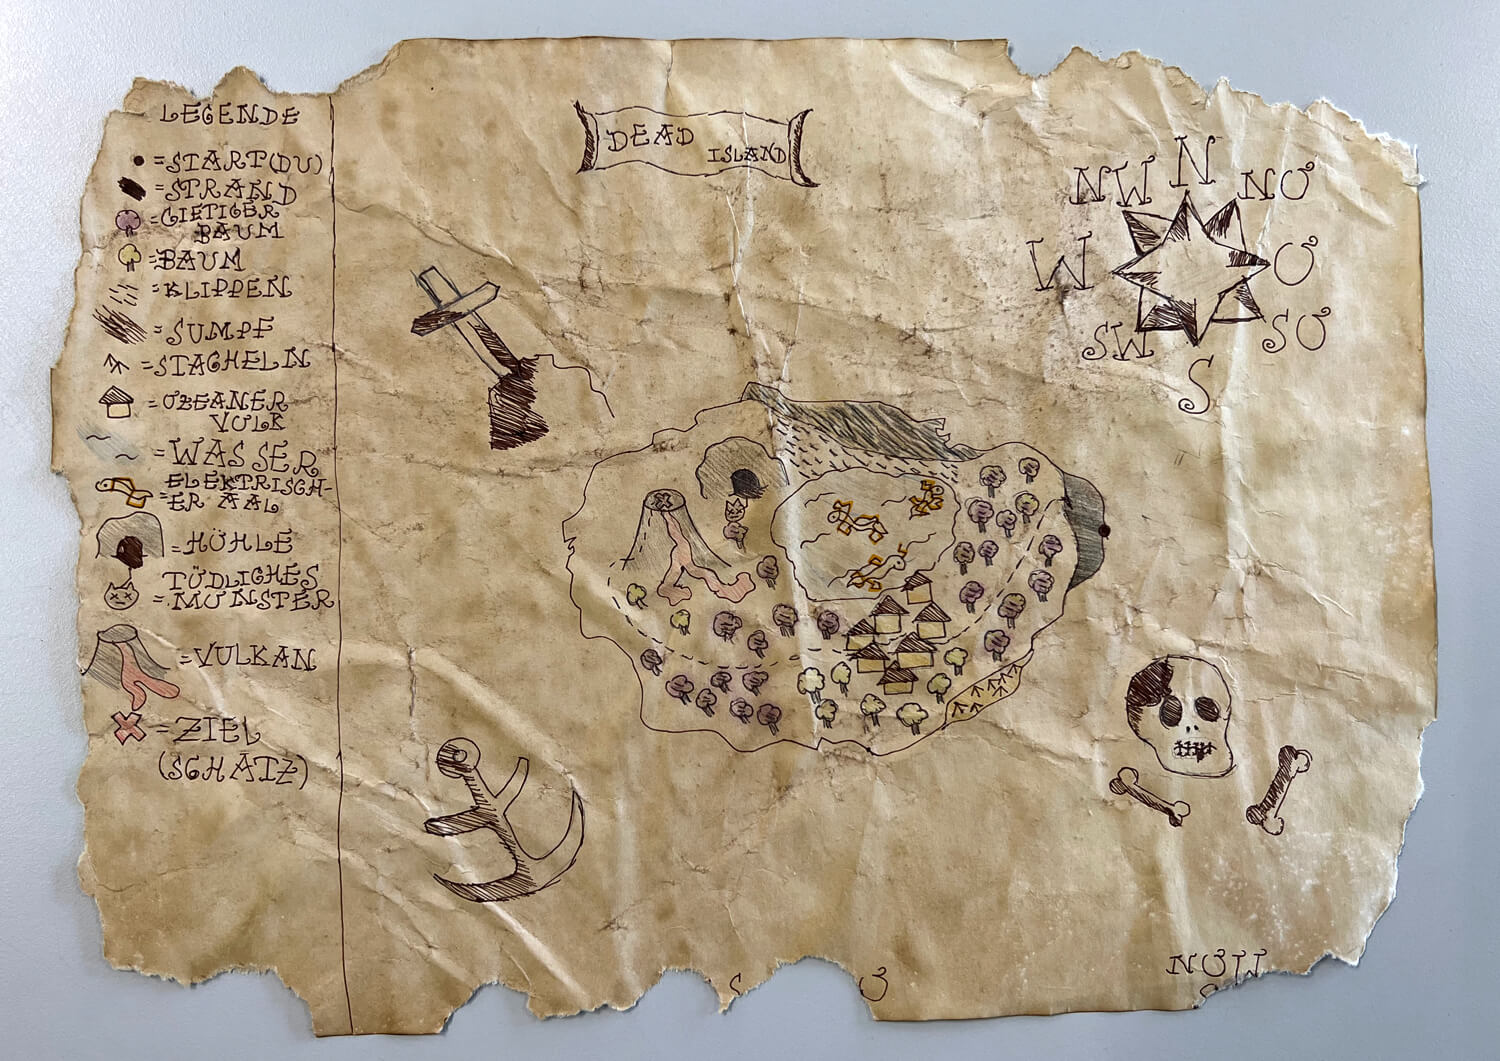 LEGENDE
=START(DU)
=STRAND
=GIFTIGER
BAUM
=BAUM
=KLIPPEN
=SUMPF
=STACHELN
=OZEANER
VOLK
=WASSER
ELEKTRISCH-
=ER AAL
=HÖHLE
TÖDLICHES
=MONSTER
=VULKAN
=ZIEL
(SCHATZ)
DEAD
ISLAND
N
NW
NO
W
O
SW
SO
S
NOW